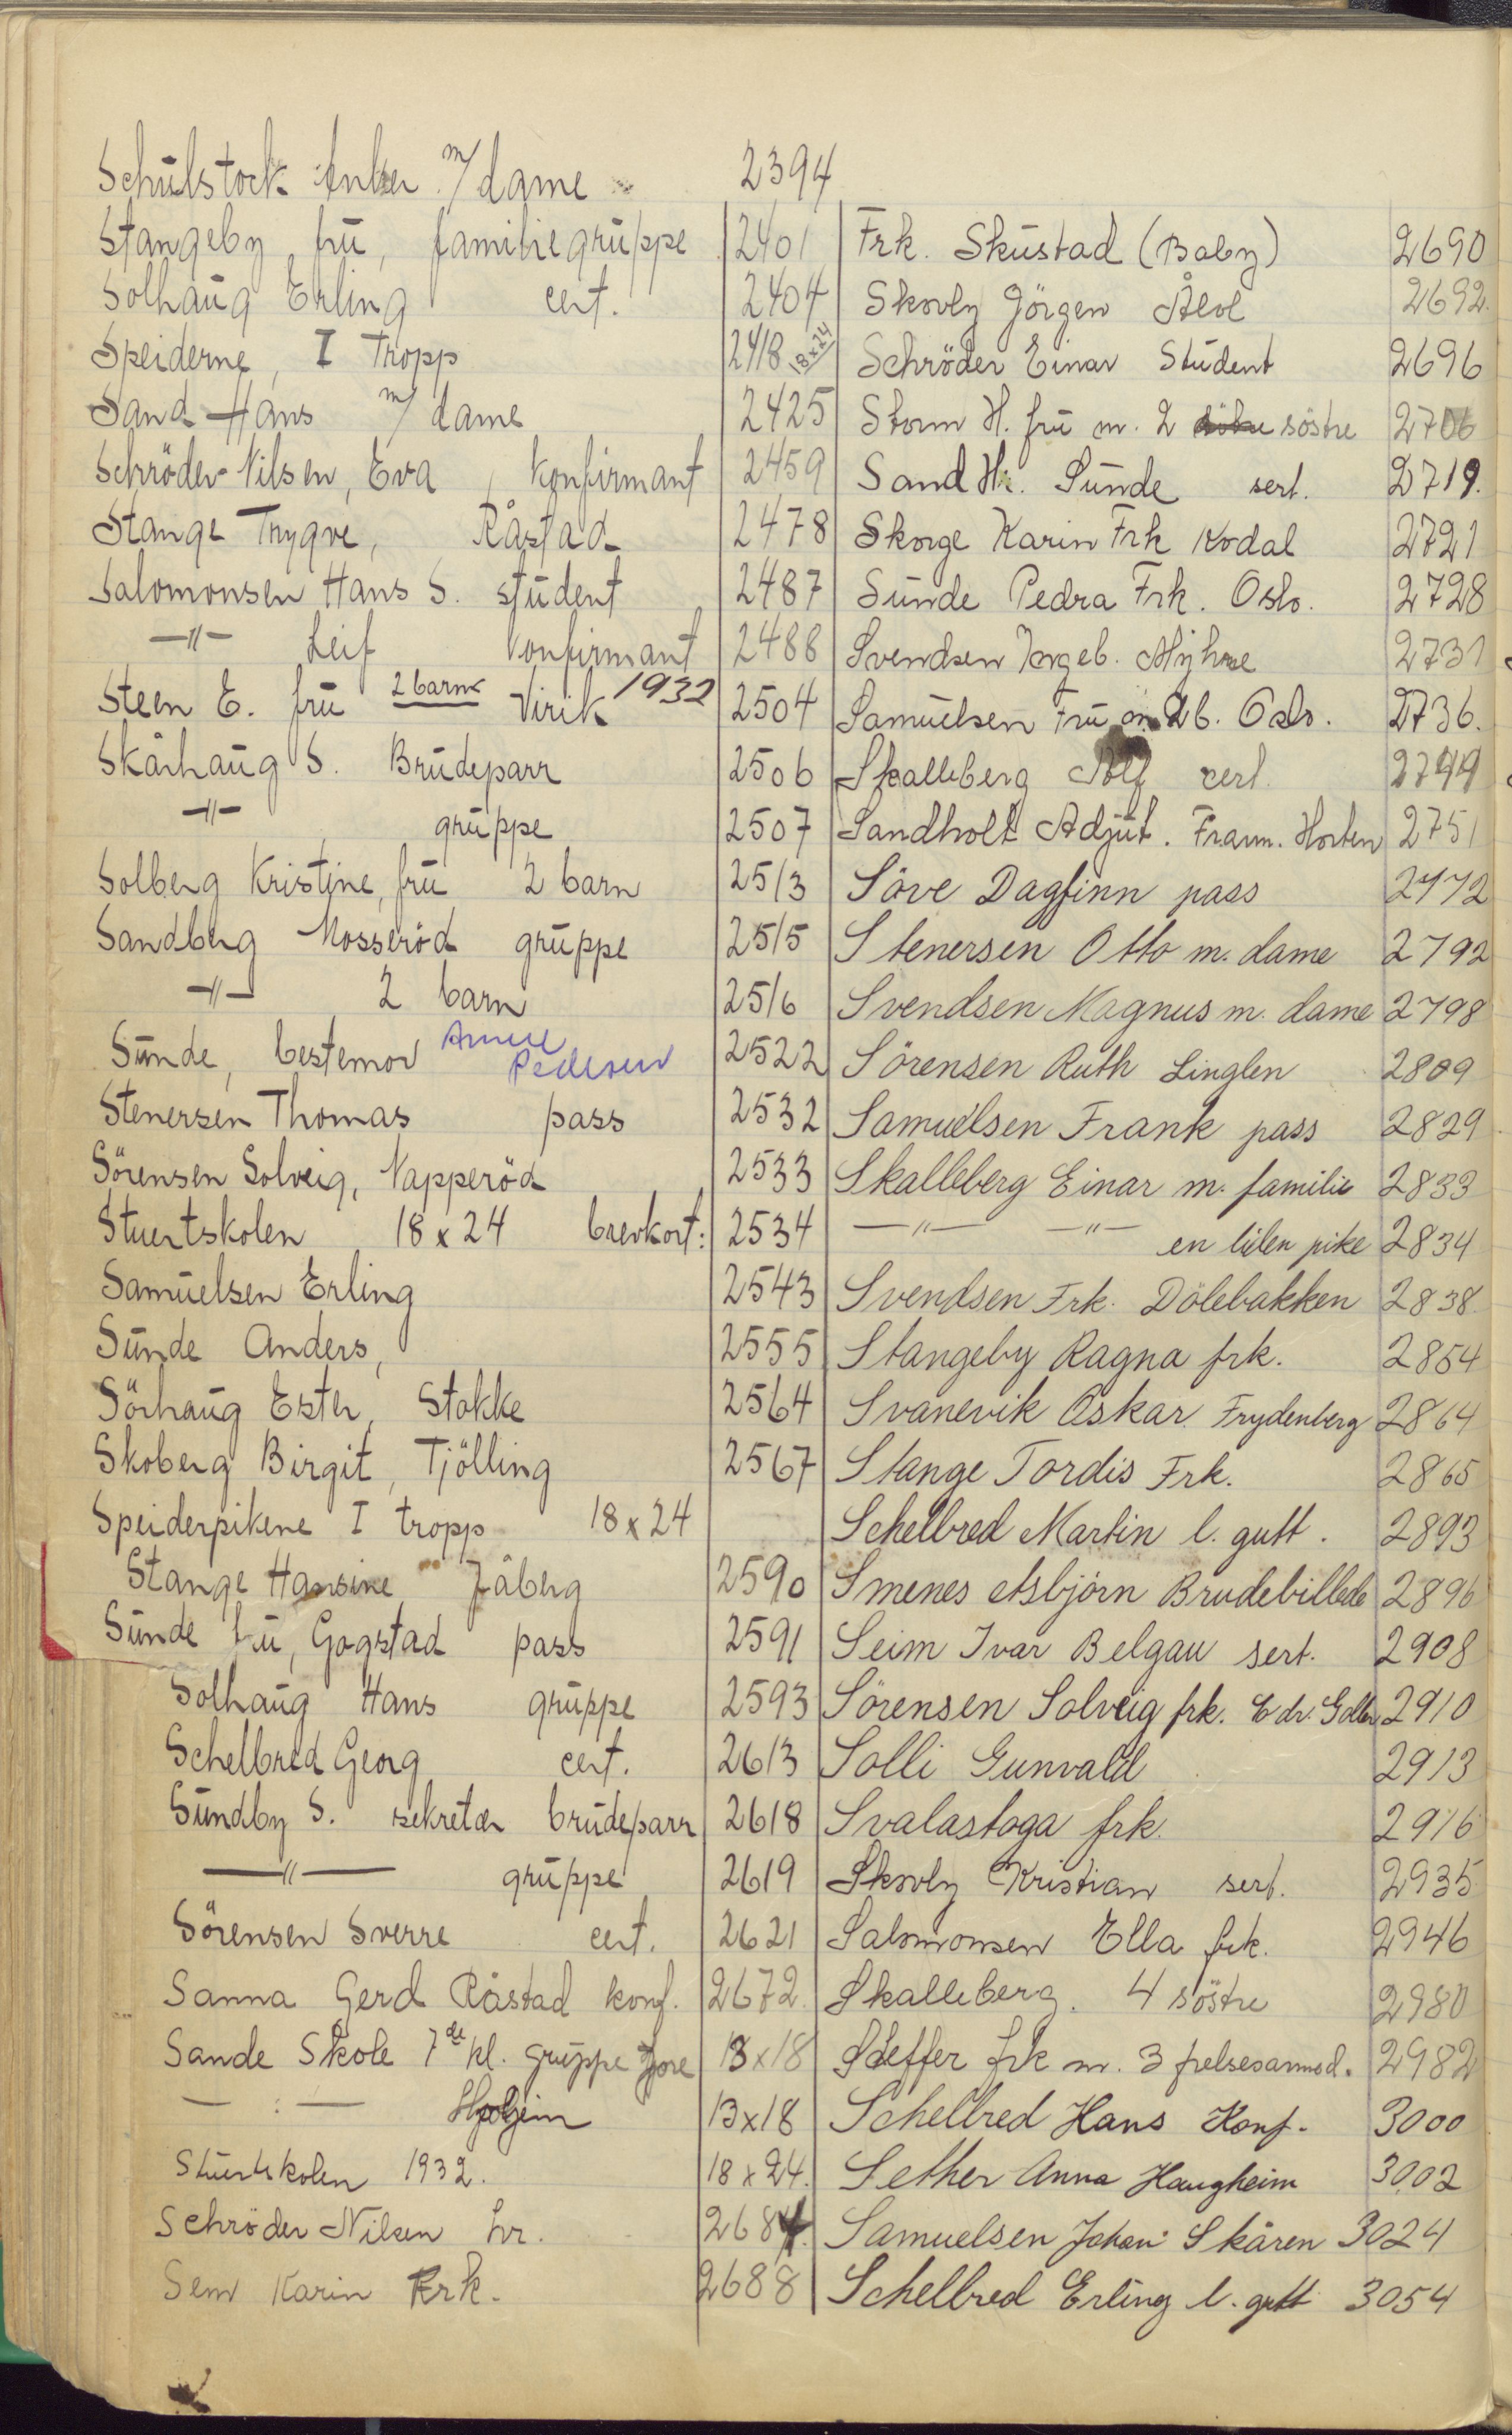 Schulstock Anker m/ dame 2394
Stangeby fru, familiegruppe 2401
Solhaug Erling cert. 2404
Speiderne, I Tropp 2418 18x24
Sand Hans m/ dame 2425
Schröder-Nilsen, Eva, konfirmant 2459
Stange Trygve, Råstad 2478
Salomonsen Hans S. student 2487
—"— Leif konfirmant 2488
Steen E. fru 2 barn Virik 1932 2504
Skårhaug S. Brudeparr 2506
—"— gruppe 2507
Solberg Kristine, fru 2 barn 2513
Sandberg Mosseröd gruppe 2515
—"— 2 barn 2516
Sunde, bestemor Anne Pedersen 2522
Stenersen Thomas pass 2532
Sörensen Solveig, Napperöd 2533
Stuertskolen 18x24 brevkort: 2534
Samuelsen Erling 2543
Sunde Anders, 2555
Sörhaug Ester, Stokke 2564
Skoberg Birgit, Tjölling 2567
Speiderpikene I tropp 18x24
Stange Hansine Jåberg 2590
Sunde fru, Gogstad pass 2591
Solhaug Hans gruppe 2593
Schelbred Georg cert. 2613
Sundby S. sekretær brudeparr 2618
—"— gruppe 2619
Sörensen Sverre cert. 2621
Sanna Gerd Råstad konf. 2672
Sande Skole 7de kl. gruppe 13x18
— : — 13x18
Stuertskolen 1932. 18x24.
Schröder Nilsen hr. 2684.
Sem Karin Frk. 2688
Frk. Skustad (Baby) 2690
Skovly Jörgen 2692.
Schröder Einar Student 2696
Storm H. fru m. 2 söstre 2706
Sand Hr. Sunde sert. 2719.
Skorge Karin Frk Kodal 2721
Sunde Pedra Frk. Oslo. 2728
Svendsen Ingeb. Myhre 2731
Samuelsen Fru m. 2 b. Oslo. 2736.
Skalleberg cert. 2749
Sandholt Adjut. Fram. Horten 2751
Söve Dagfinn pass 2772
Stenersen Otto m. dame 2792
Svendsen Magnus m. dame 2798
Sörensen Ruth Linglen 2809
Samuelsen Frank pass 2829
Skalleberg Einar m. familie 2833
—"— —"— en liten pike 2834
Svendsen Frk. Dölebakken 2838
Stangeby Ragna frk. 2854
Svanevik Oskar Frydenberg 2864
Stange Tordis Frk. 2865
Schelbred Martin l. gutt. 2893
Smenes Asbjörn Brudebillede 2896
Seim Ivar Belgau sert. 2908
Sörensen Solveig frk. 2910
Solli Gunvald 2913
Svalastoga frk. 2916
Skovly Kristian sert. 2935
Salomonsen Ella frk. 2946
Skalleberg. 4 söstre 2980
Steffer frk m. 3 frelsesarmed. 2982
Schelbred Hans Konf. 3000
Sether Anna Haugheim 3002
Samuelsen Johan Skåren 3024
Schelbred Erling l. gutt 3054